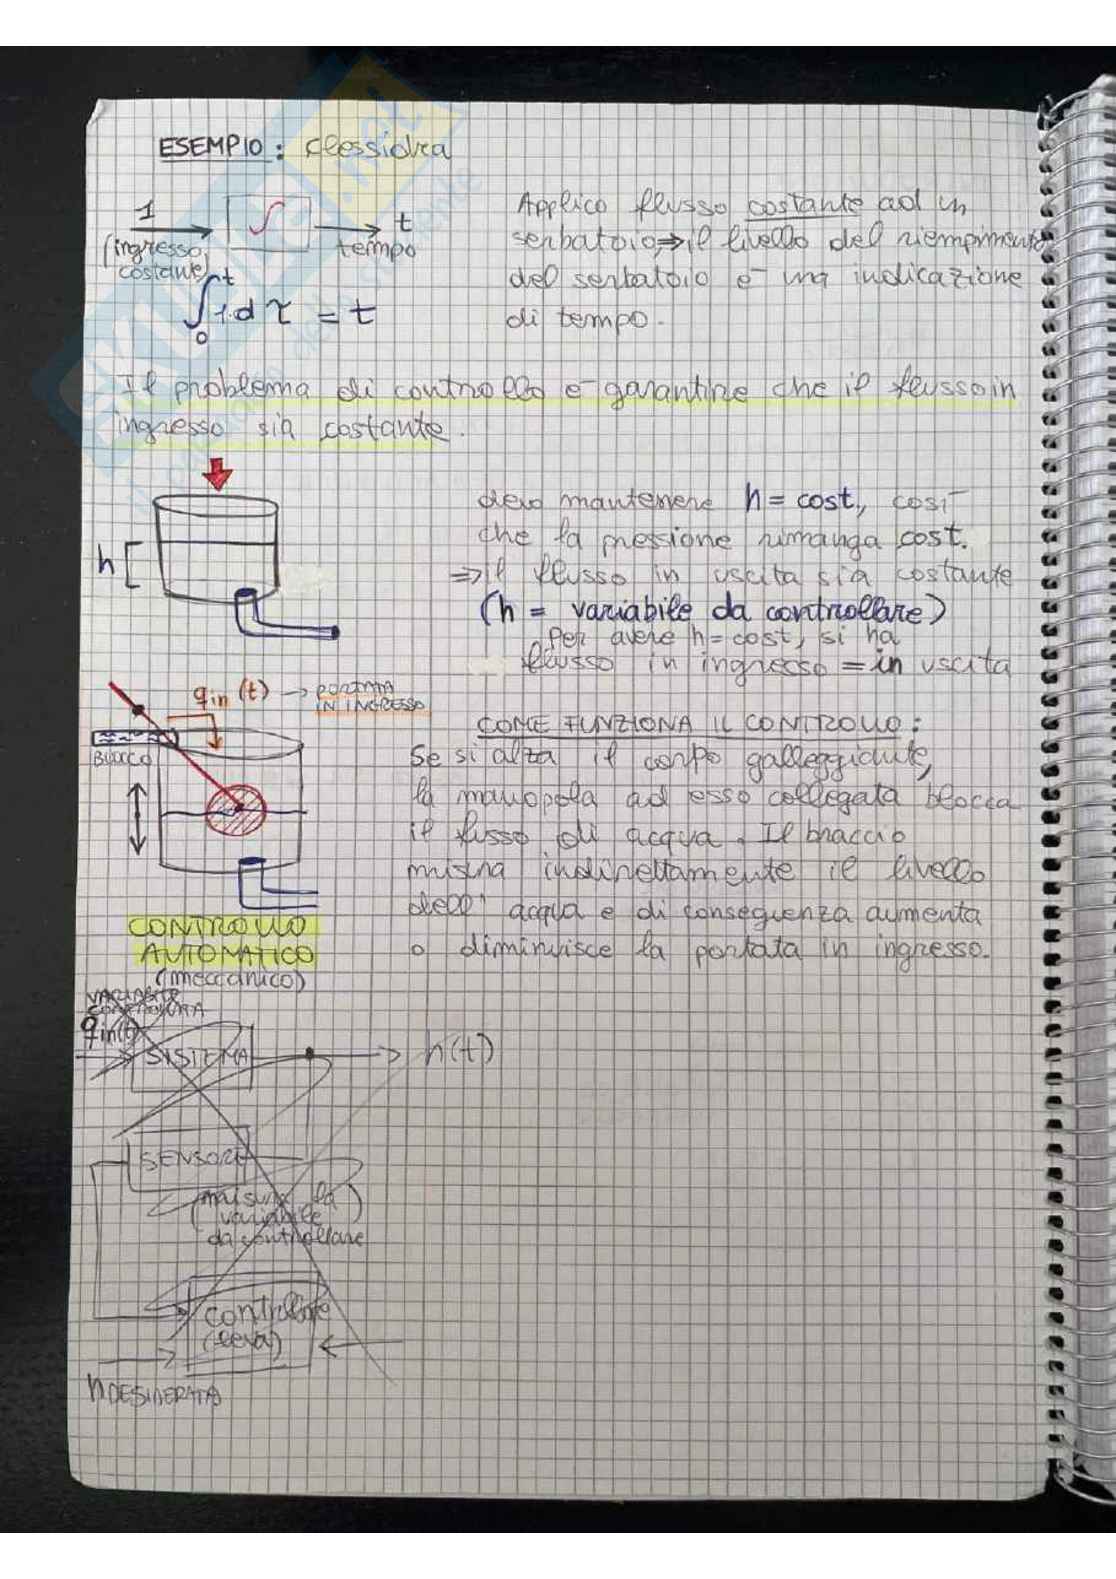 ESEMPIO: clessidra
1
(ingresso costante)
∫
t
tempo
∫₀ᵗ 1·dτ = t
Applico flusso costante ad un
serbatoio ⇒ il livello del riempimento
del serbatoio è una indicazione
di tempo.
Il problema di controllo è garantire che il flusso in
ingresso sia costante.
h
devo mantenere h = cost., così
che la pressione rimanga cost.
⇒ il flusso in uscita sia costante
(h = variabile da controllare)
Per avere h = cost, si ha
flusso in ingresso = in uscita
qin (t) → PORTATA
IN INGRESSO
BLOCCO
CONTROLLO
AUTOMATICO
(meccanico)
COME FUNZIONA IL CONTROLLO:
Se si alza il corpo galleggiante,
la manopola ad esso collegata blocca
il flusso di acqua. Il braccio
misura indirettamente il livello
dell' acqua e di conseguenza aumenta
o diminuisce la portata in ingresso.
VARIABILE
qin(t)
SISTEMA
h(t)
SENSORE
(misura la
variabile
da controllare
controllore
(leva)
h DESIDERATA